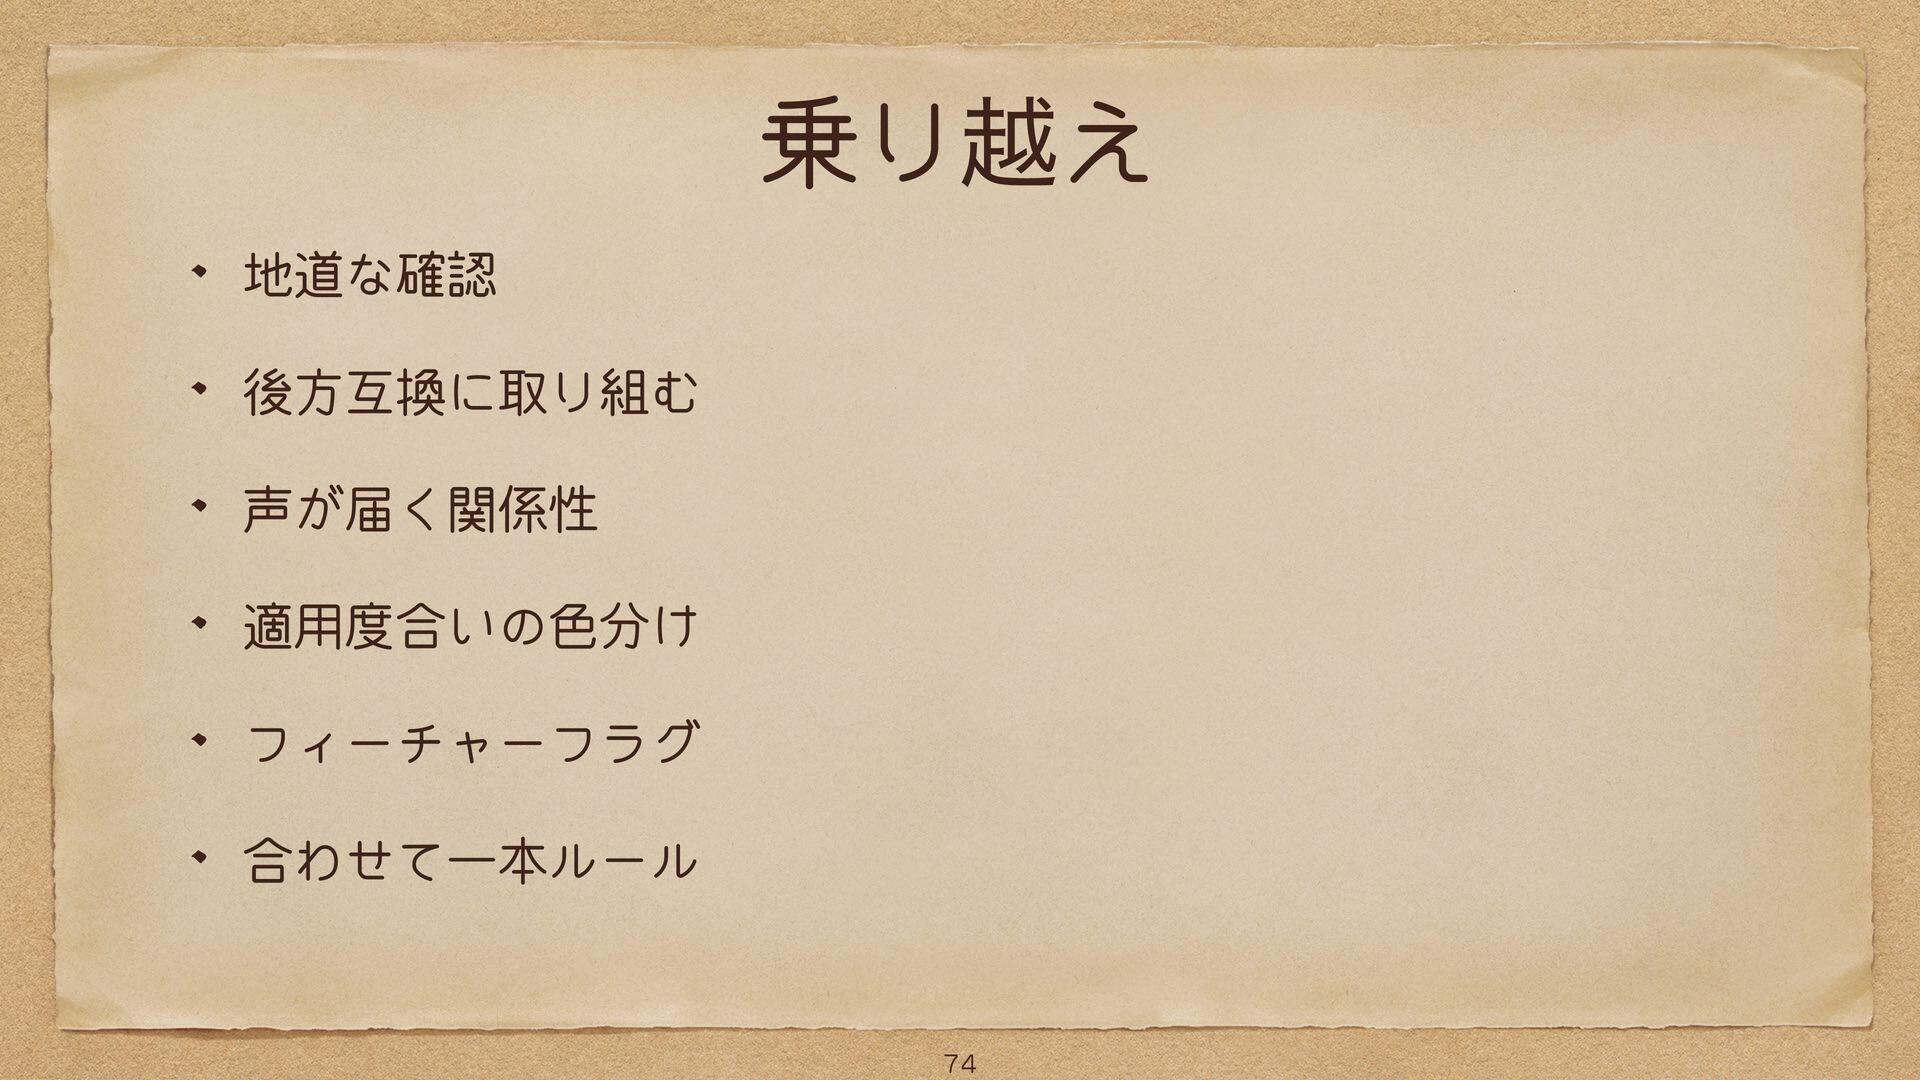 乗り越え
• 地道な確認
• 後方互換に取り組む
• 声が届く関係性
• 適用度合いの色分け
• フィーチャーフラグ
• 合わせて一本ルール
74